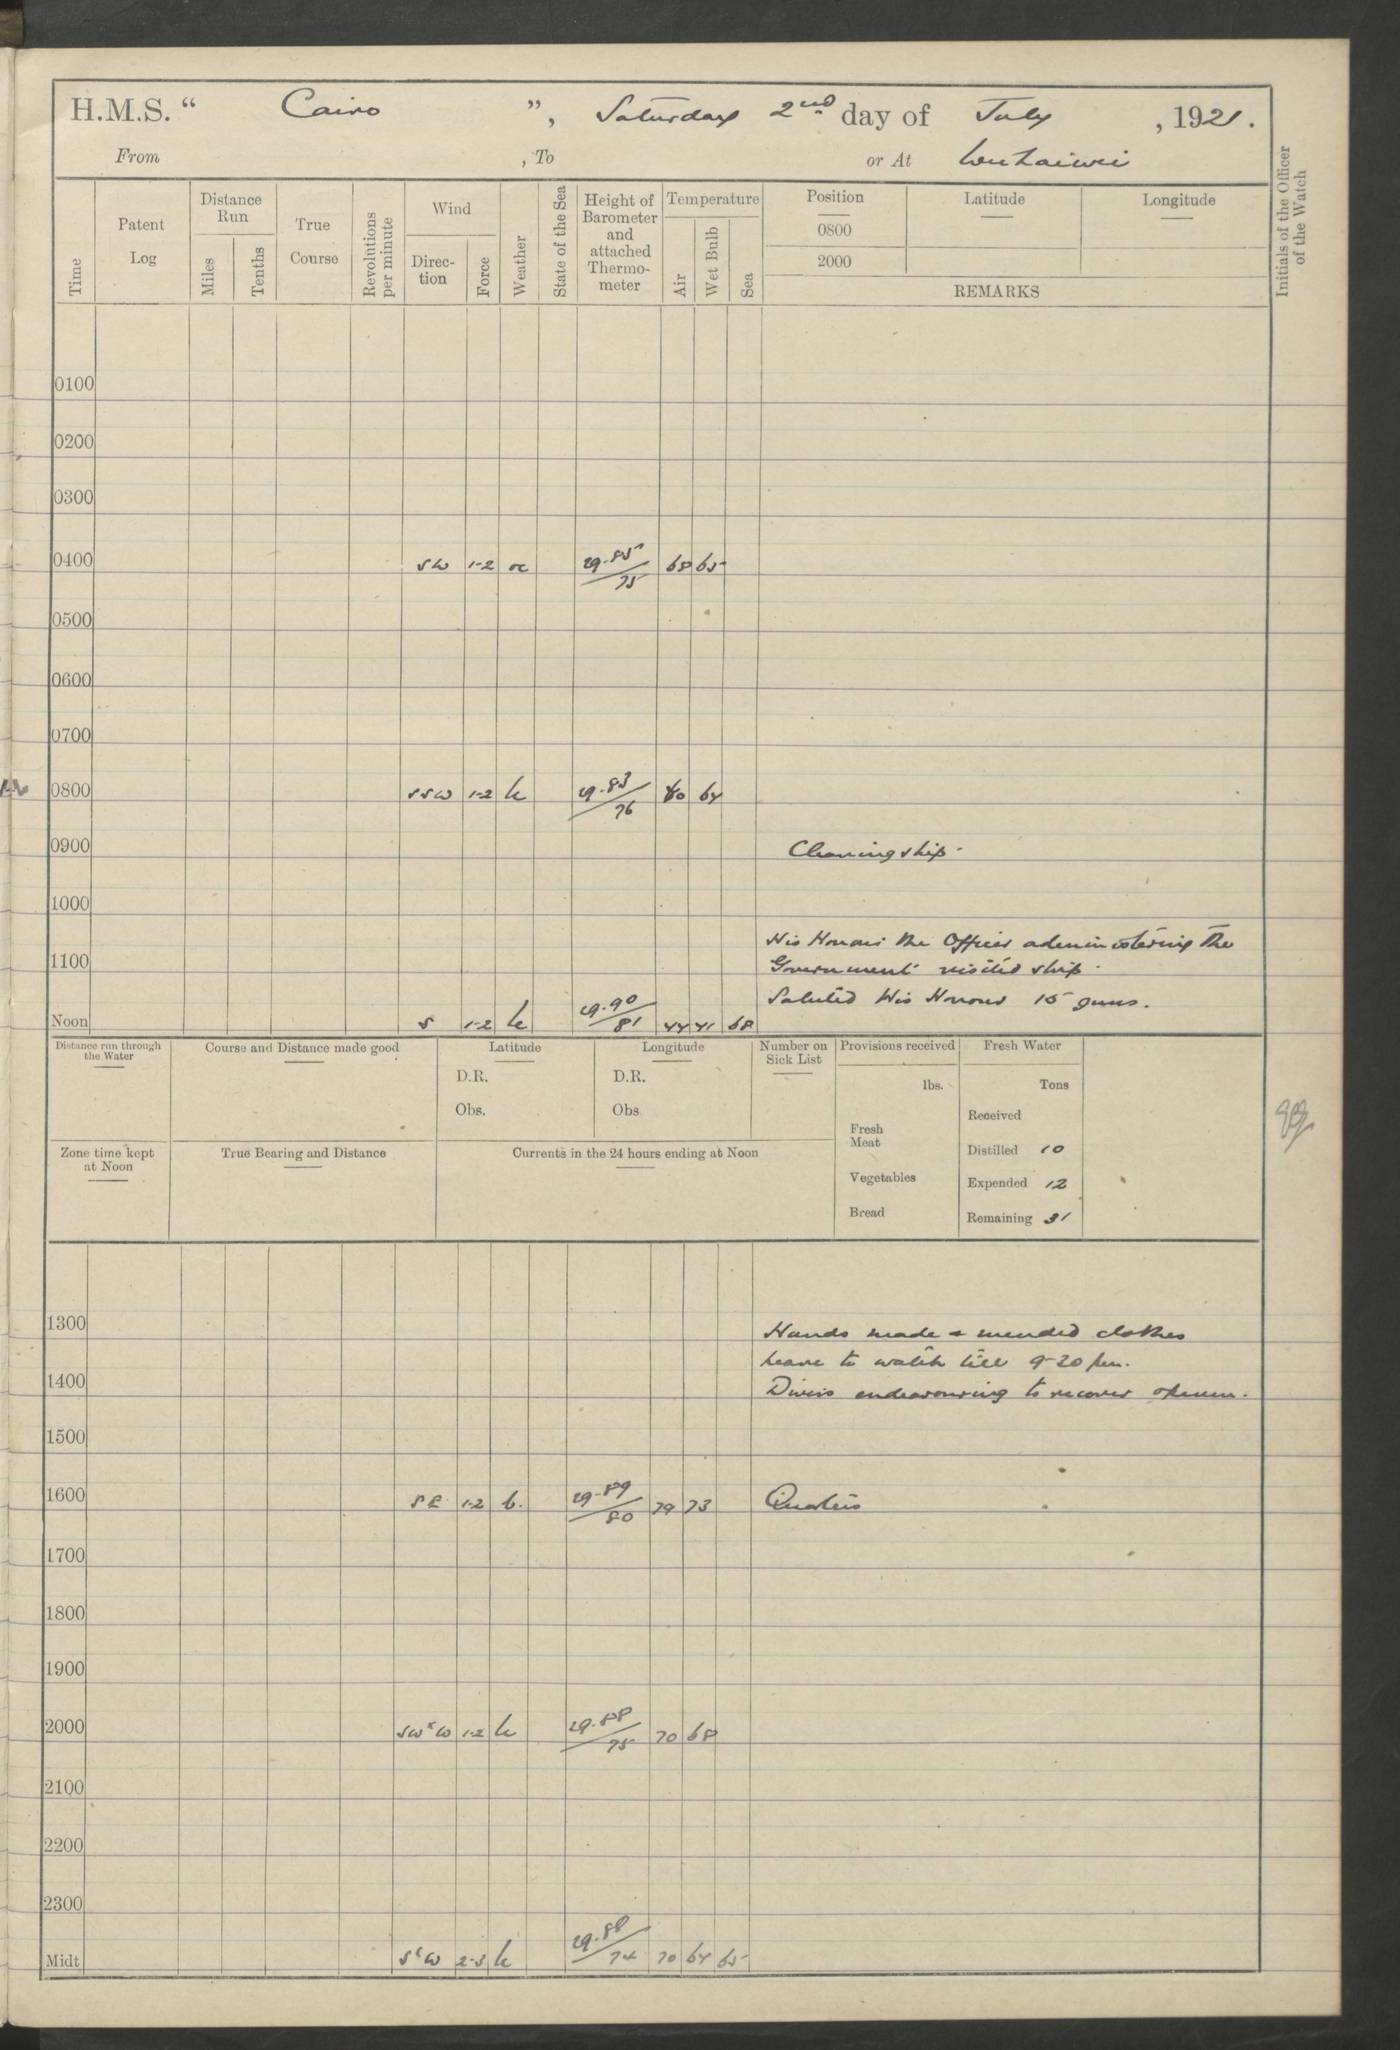 H.M.S. “ Cairo ”, Saturday 2nd day of July , 1921.
From , To or At Weihaiwei
Time
Patent Log
Distance Run
Miles
Tenths
True Course
Revolutions per minute
Wind
Direc-tion
Force
Weather
State of the Sea
Height of Barometer and attached Thermo-meter
Temperature
Air
Wet Bulb
Sea
Position
0800
2000
Latitude
Longitude
REMARKS
Initials of the Officer of the Watch
0100
0200
0300
0400 SW 1-2 oc 29.85/75 68 65
0500
0600
0700
0800 SSW 1-2 bc 29.83/76 64
0900 Cleaning ship.
1000
His Honour the Officer administering the
1100 Government visited ship.
Saluted His Honour 15 guns.
Noon S 1-2 bc 29.90/81 68
Distance run through the Water
Course and Distance made good
Latitude
D.R.
Obs.
Longitude
D.R.
Obs
Number on Sick List
Provisions received
lbs.
Fresh Meat
Vegetables
Bread
Fresh Water
Tons
Received
Distilled 10
Expended 12
Remaining 31
Zone time kept at Noon
True Bearing and Distance
Currents in the 24 hours ending at Noon
1300 Hands made & mended clothes
Leave to watch till 9-30 pm.
1400 Divers endeavouring to recover
1500
1600 SE 1-2 b. 29.89/80 79 73 Quarters
1700
1800
1900
2000 SW'W 1-2 bc 29.88/75 70 68
2100
2200
2300
Midt S'W 2-3 bc 29.88/74 70 64 65